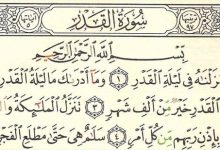 سُورَةُ القَدْرِ
بِسْمِ اللَّهِ الرَّحْمَٰنِ الرَّحِيمِ
زَلْنَٰهُ فِي لَيْلَةِ الْقَدْرِ ١ وَمَا أَدْرَىٰكَ مَا لَيْلَةُ الْقَدْرِ
الْقَدْرِ خَيْرٌ مِّنْ أَلْفِ شَهْرٍ ٣ تَنَزَّلُ الْمَلَٰٓئِكَةُ
بِإِذْنِ رَبِّهِم مِّن كُلِّ أَمْرٍ ٤ سَلَٰمٌ هِيَ حَتَّىٰ مَطْلَعِ الْفَجْرِ